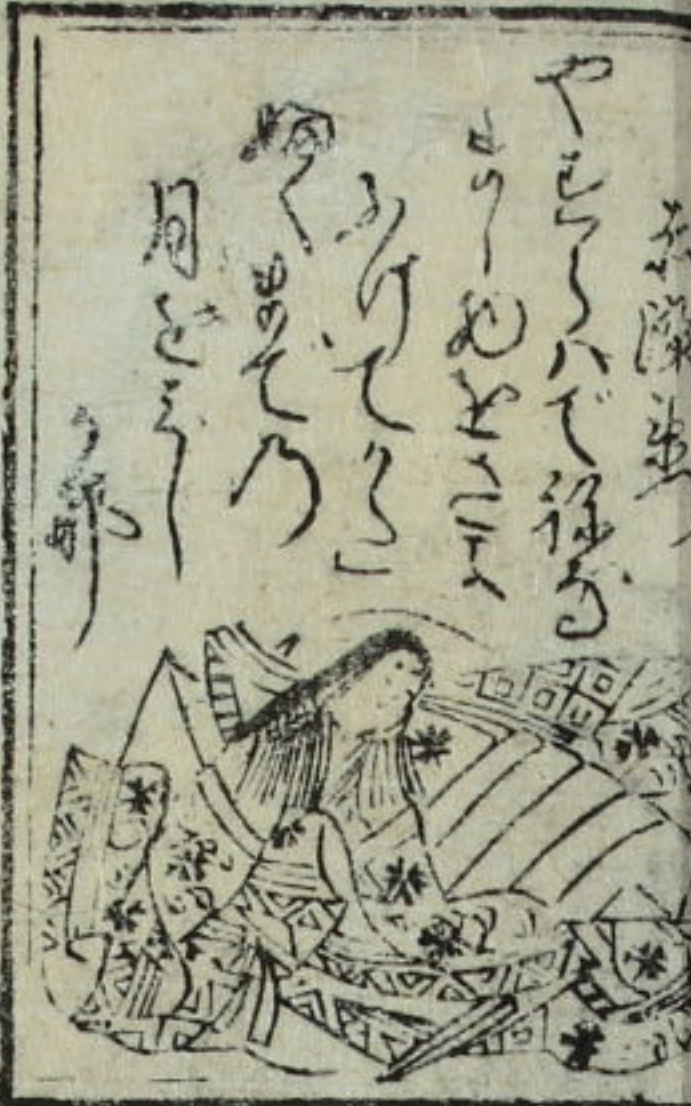 赤染衛
やすらハで寝な
まし物をさよ
ふけてかた
ぶくまでの
月をみし
かな